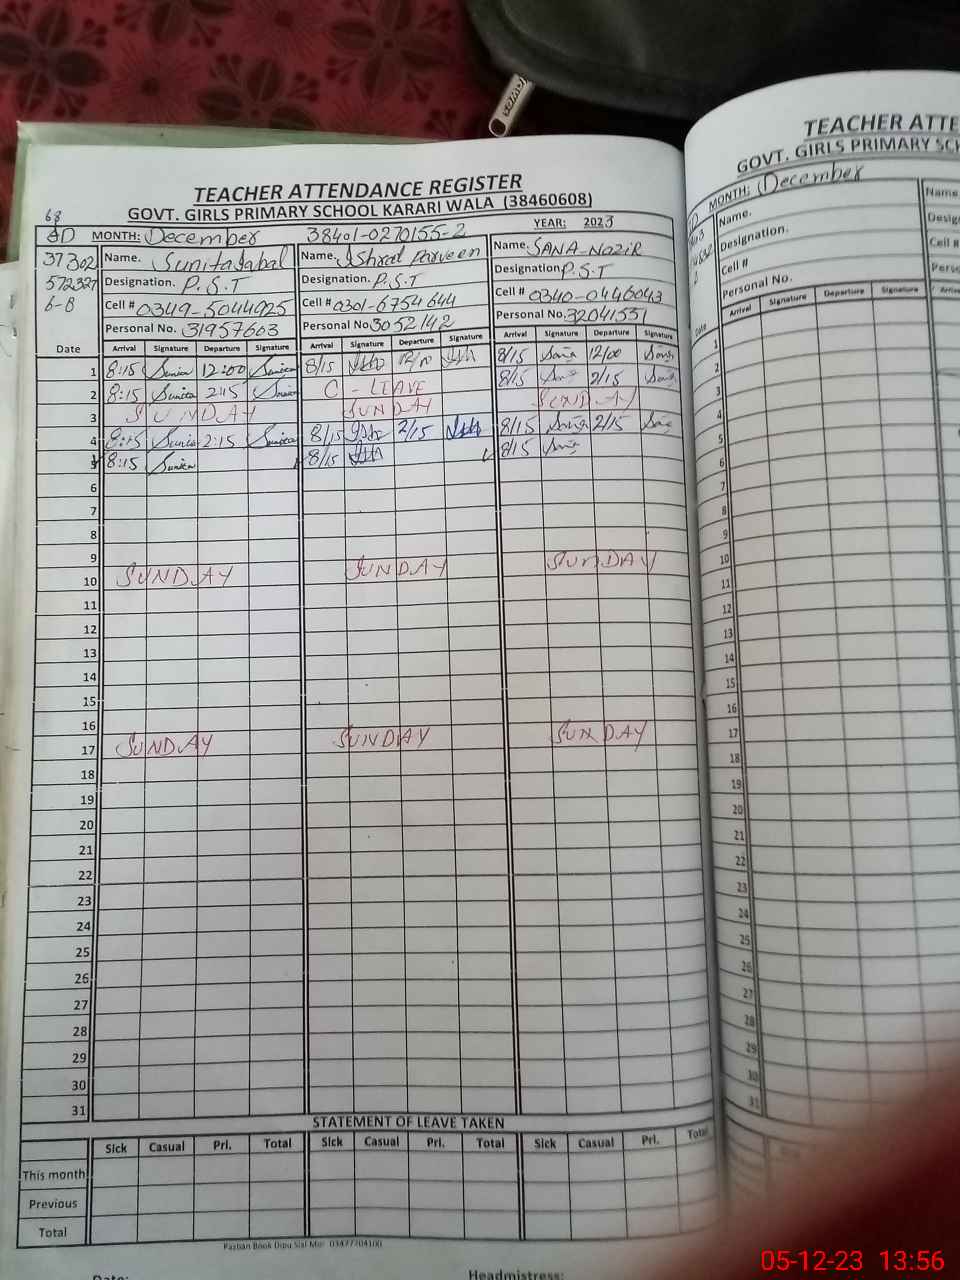 TEACHER ATTENDANCE REGISTER
GOVT. GIRLS PRIMARY SCHOOL KARARI WALA (38460608)
68
MONTH: December 38401-0270155-2 YEAR: 2023
37302
572327
6-B
Name. Sunita Iqbal
Designation. P.S.T
Cell # 0349-5044925
Personal No. 31957603
Name. Ishrat Parveen
Designation. P.S.T
Cell # 0301-6754644
Personal No. 3052142
Name. SANA-NAZIR
Designation P.S.T
Cell # 0340-0446043
Personal No. 32041551
Date Arrival Signature Departure Signature Arrival Signature Departure Signature Arrival Signature Departure Signature
1 8:15 12:00 8/15 12/00 8/15 Sana 12/00 Sana
2 8:15 Sunita 2:15 C - LEAVE 8/15 Sana 2/15 Sana
3 SUNDAY SUNDAY SUNDAY
4 8:15 2:15 Sunita 8/15 2/15 8/15 Sana 2/15 Sana
5 8:15 Sunita 8/15 8/15 Sana
6
7
8
9
10 SUNDAY SUNDAY SUNDAY
11
12
13
14
15
16
17 SUNDAY SUNDAY SUNDAY
18
19
20
21
22
23
24
25
26
27
28
29
30
31
STATEMENT OF LEAVE TAKEN
Sick Casual Pri. Total Sick Casual Pri. Total Sick Casual Pri. Total
This month
Previous
Total
Date: Headmistress:
TEACHER ATTE
GOVT. GIRLS PRIMARY SCH
MONTH: December
Name. Name
Designation. Desig
Cell # Cell #
Personal No. Perso
Date Arrival Signature Departure Signature Arriv
1
2
3
4
5
6
7
8
9
10
11
12
13
14
15
16
17
18
19
20
21
22
23
24
25
26
27
28
29
30
31
05-12-23 13:56